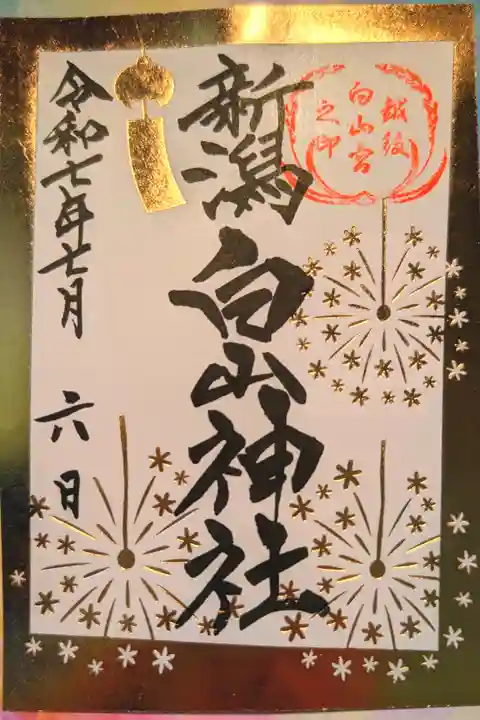 越後
白山宮
之印
新潟白山神社
令和七年七月六日